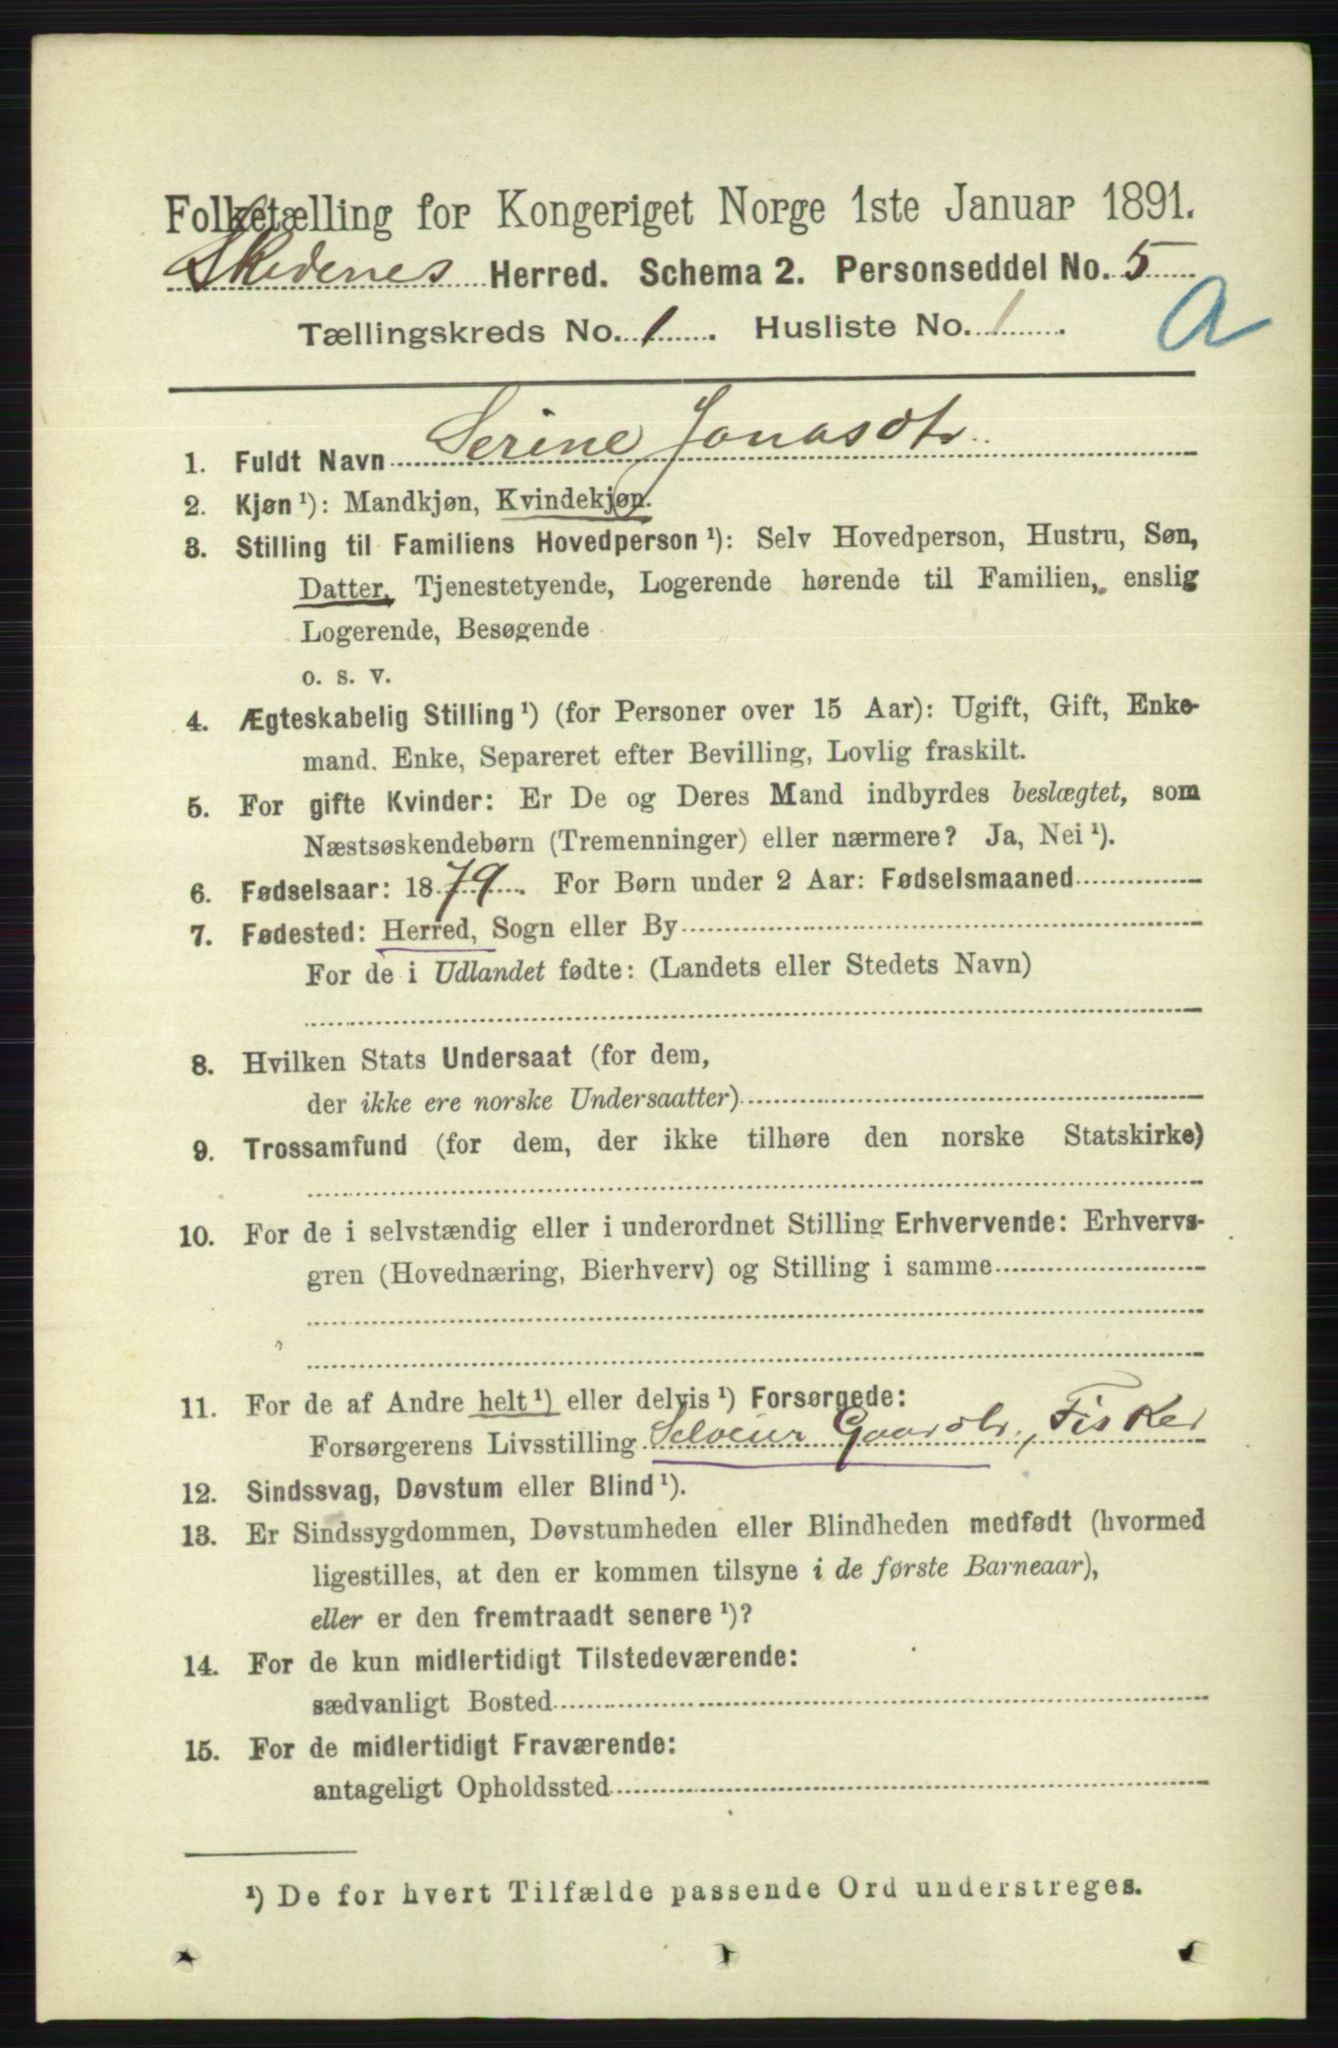 Folketælling for Kongeriget Norge 1ste Januar 1891.
Skudenes Herred. Schema 2. Personseddel No. 5
Tællingskreds No. 1. Husliste No. 1.
A
1. Fuldt Navn Serine Jonasdtr.
2. Kjøn ¹): Mandkjøn, Kvindekjøn.
3. Stilling til Familiens Hovedperson ¹): Selv Hovedperson, Hustru, Søn,
Datter, Tjenestetyende, Logerende hørende til Familien, enslig
Logerende, Besøgende
o. s. v.
4. Ægteskabelig Stilling ¹) (for Personer over 15 Aar): Ugift, Gift, Enke-
mand. Enke, Separeret efter Bevilling, Lovlig fraskilt.
5. For gifte Kvinder: Er De og Deres Mand indbyrdes beslægtet, som
Næstsøskendebørn (Tremenninger) eller nærmere? Ja, Nei ¹).
6. Fødselsaar: 1879. For Børn under 2 Aar: Fødselsmaaned
7. Fødested: Herred, Sogn eller By
For de i Udlandet fødte: (Landets eller Stedets Navn)
8. Hvilken Stats Undersaat (for dem,
der ikke ere norske Undersaatter)
9. Trossamfund (for dem, der ikke tilhøre den norske Statskirke)
10. For de i selvstændig eller i underordnet Stilling Erhvervende: Erhvervs-
gren (Hovednæring, Bierhverv) og Stilling i samme
11. For de af Andre helt ¹) eller delvis ¹) Forsørgede:
Forsørgerens Livsstilling Selveier Gaardbr., Fisker
12. Sindssvag, Døvstum eller Blind ¹).
13. Er Sindssygdommen, Døvstumheden eller Blindheden medfødt (hvormed
ligestilles, at den er kommen tilsyne i de første Barneaar),
eller er den fremtraadt senere ¹)?
14. For de kun midlertidigt Tilstedeværende:
sædvanligt Bosted
15. For de midlertidigt Fraværende:
antageligt Opholdssted
¹) De for hvert Tilfælde passende Ord understreges.